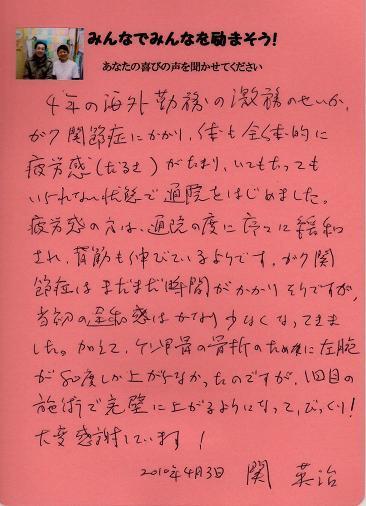 みんなでみんなを励まそう!
あなたの喜びの声を聞かせてください
4年の海外勤務の激務のせいか、
がク関節症にかかり、体も全体的に
疲労感(だるさ)がたまり、いてもたっても
いられない状態で通院をはじめました。
疲労感の方は、通院の度に序々に緩和
され、背筋も伸びているようです。がク関
節症はまだまだ時間がかかりそうですが、
当初の違和感はかなり少なくなってきま
した。加えて、ケンコウ骨の骨折のために左腕
が80度しか上がらなかったのですが、1回目の
施術で完璧に上がるようになって、びっくり!
大変感謝しています!
2010年4月3日 関 英治